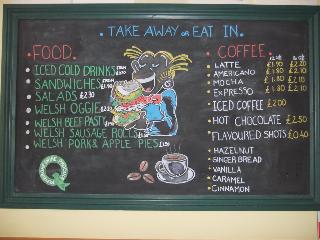 TAKE AWAY OR EAT IN.
FOOD.
ICED COLD DRINKS FROM
SANDWICHES FROM
SALADS £2.30
WELSH OGGIE
WELSH BEEF PASTY
WELSH SAUSAGE ROLLS
WELSH PORK & APPLE PIES
COFFEE.
LATTE £1.90 £2.20
AMERICANO £1.80 £2.10
MOCHA £2.10
EXPRESSO £1.80 £2.10
ICED COFFEE £2.00
HOT CHOCOLATE £2.50
FLAVOURED SHOTS £0.40
HAZELNUT
GINGERBREAD
VANILLA
CARAMEL
CINNAMON